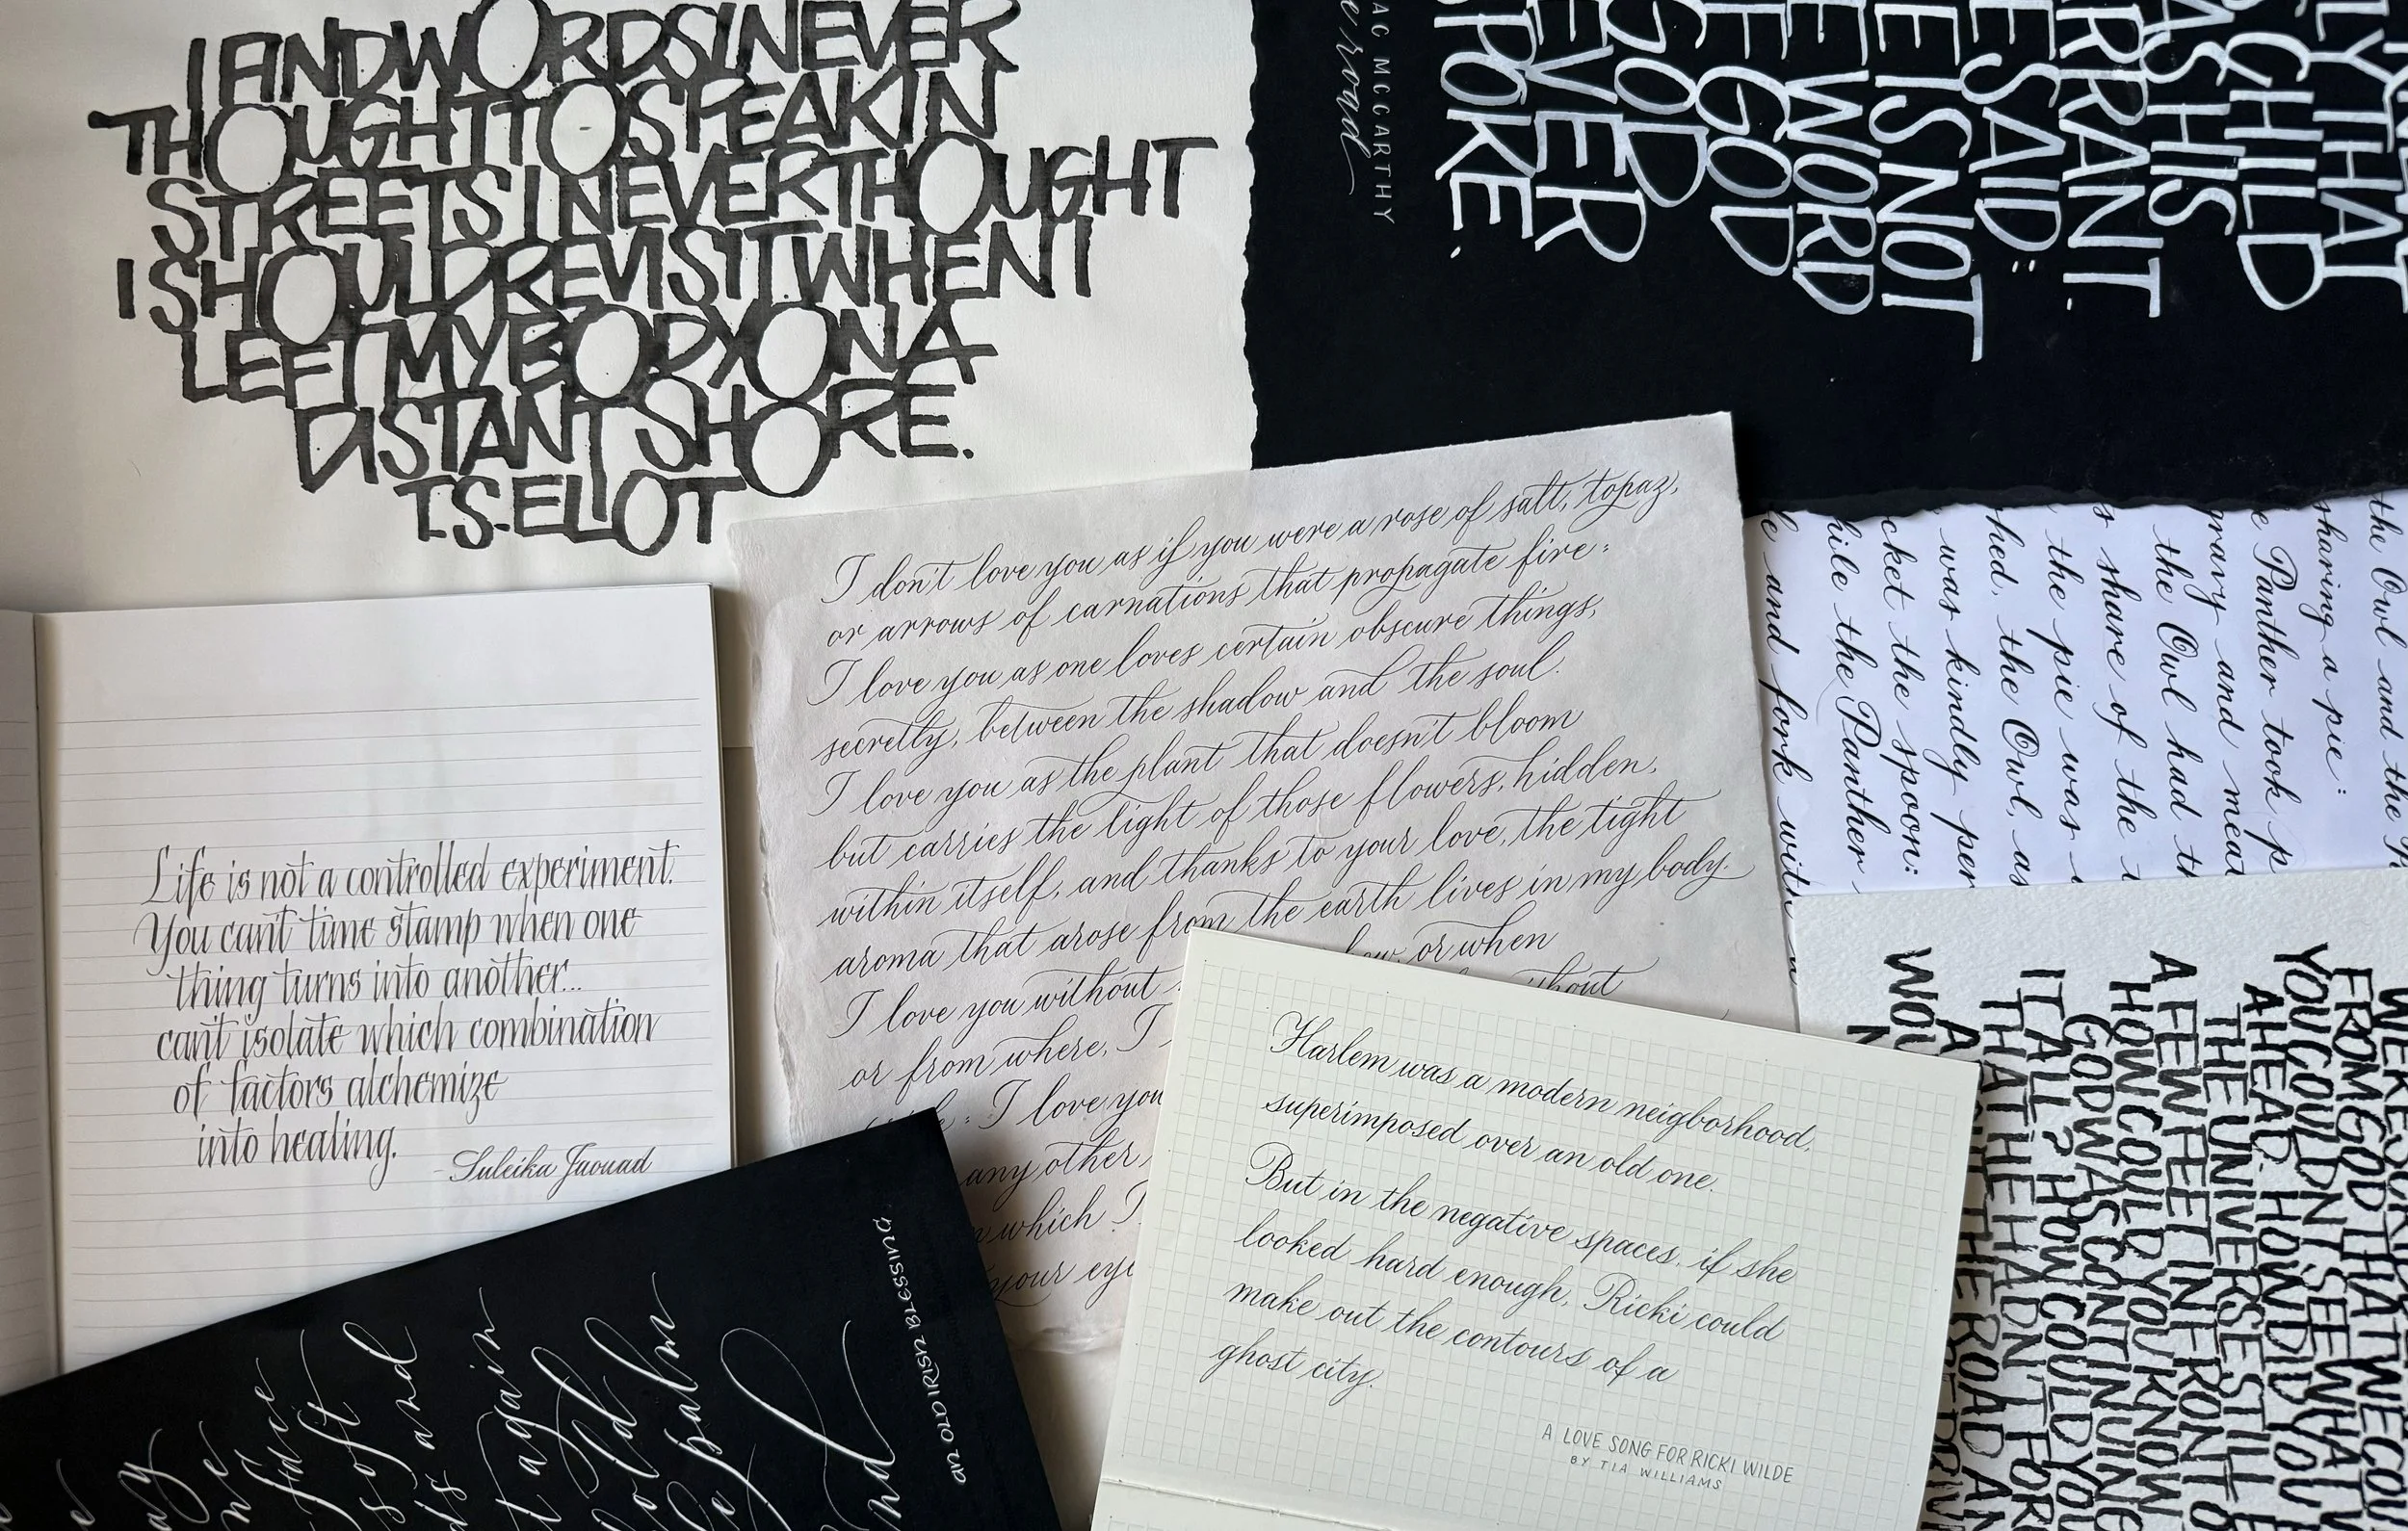 I FIND WORDS I NEVER
THOUGHT TO SPEAK IN
STREETS I NEVER THOUGHT
I SHOULD REVISIT WHEN I
LEFT MY BODY ON A
DISTANT SHORE.
T.S. ELIOT
LY THAT
CHILD
AS HIS
RRANT.
E SAID:
E IS NOT
E WORD
GOD
GOD
EVER
SPOKE.
AC MCCARTHY
e road
I don't love you as if you were a rose of salt, topaz,
or arrows of carnations that propagate fire:
I love you as one loves certain obscure things,
secretly, between the shadow and the soul.
I love you as the plant that doesn't bloom
but carries the light of those flowers, hidden,
within itself, and thanks to your love, the tight
aroma that arose from the earth lives in my body.
I love you without how, or when
or from where, I without
: I love you
any other
n which I
your eye
the Owl and the
sharing a pie:
e Panther took p
gravy and meat
the Owl had th
s share of the
the pie was
hed, the Owl, as
was kindly per
cket the spoon:
hile the Panther
le and fork with
Life is not a controlled experiment.
You can't time stamp when one
thing turns into another...
can't isolate which combination
of factors alchemize
into healing.
- Suleika Jaouad
ay
face
soft
ds and
t again
hold
palm
nd
AN OLD IRISH BLESSING
Harlem was a modern neigborhood,
superimposed over an old one.
But in the negative spaces, if she
looked hard enough, Ricki could
make out the contours of a
ghost city.
A LOVE SONG FOR RICKI WILDE
BY TIA WILLIAMS
FROM GOD THAT WE CO
YOU COULDN'T SEE WHAT W
AHEAD, HOW DID YOU
THE UNIVERSE STILL E
A FEW FEET IN FRONT O
HOW COULD YOU KNOW
GOD WAS CONTINUING
IT ALL? HOW COULD YOU
THAT HE HADN'T FOR
THE ROAD AN
WOU